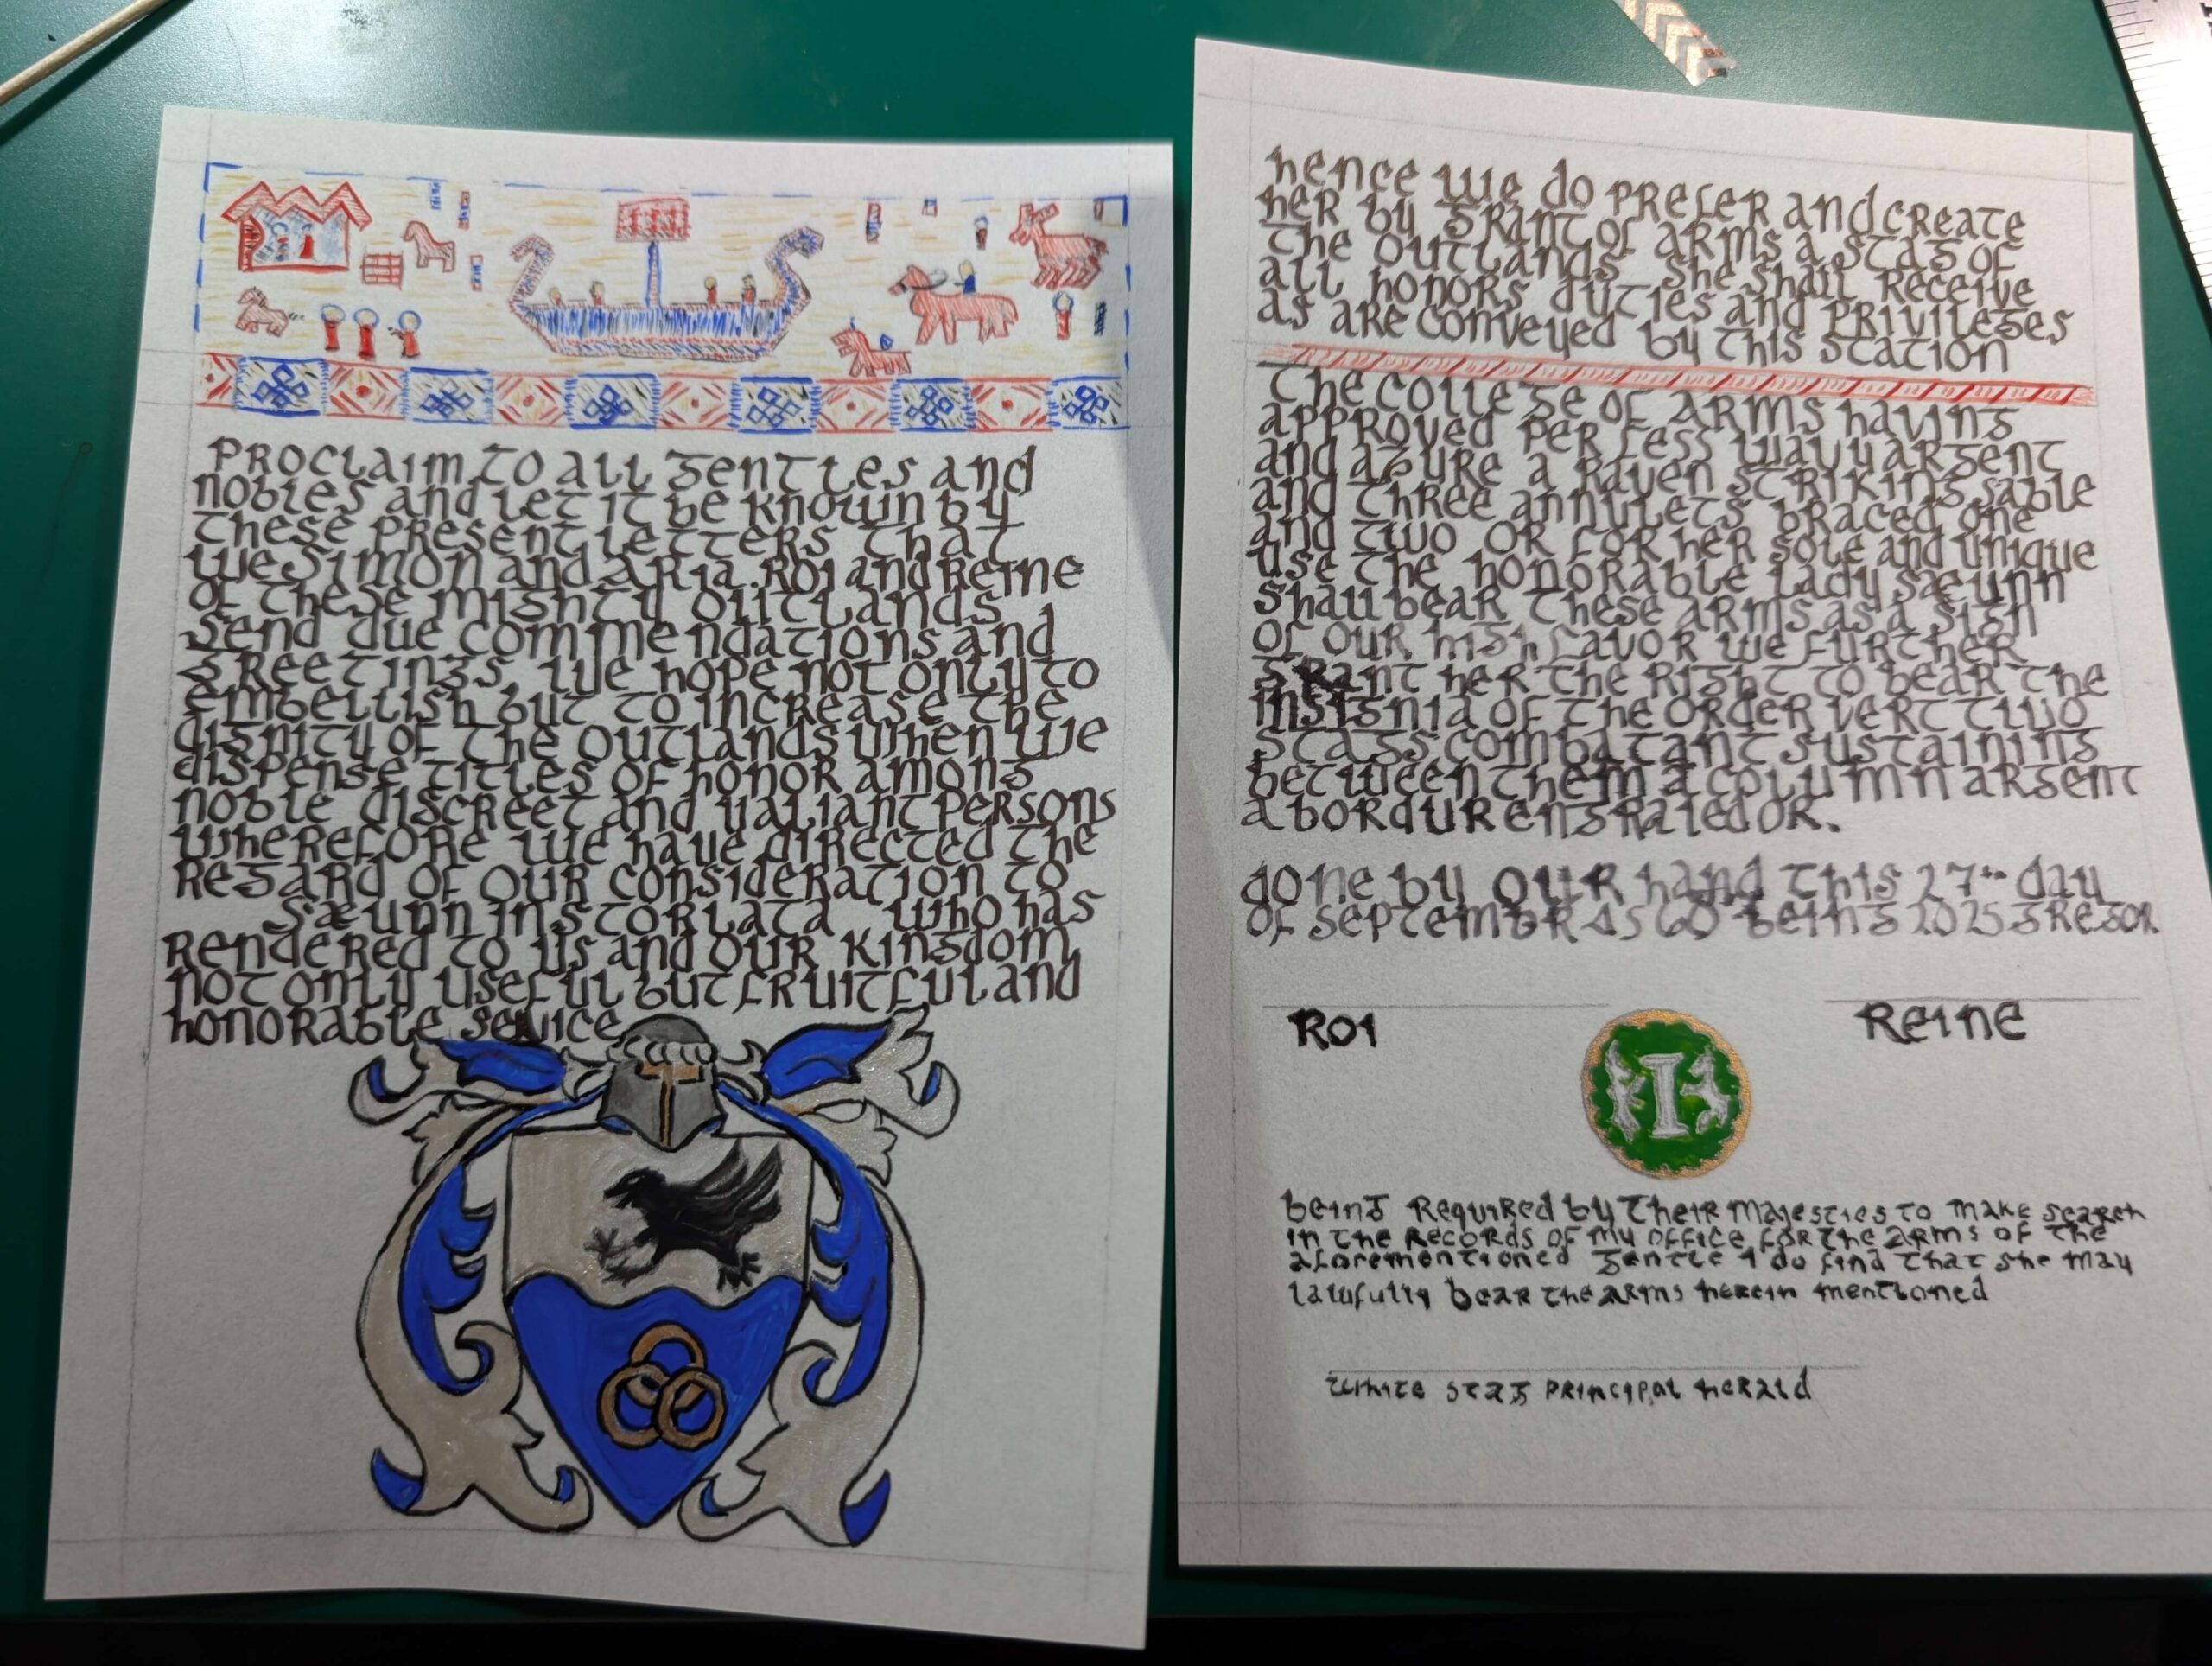 Proclaim to all gentles and
nobles and let it be known by
these present letters that
we Simon and Aria Roi and Reine
of these mighty Outlands
send due commendations and
greetings. We hope not only to
embellish but to increase the
dignity of the Outlands when we
dispense titles of honor among
noble discreet and valiant persons
Wherefore we have directed the
regard of our consideration to
Sæunn Instorlata who has
rendered to us and our kingdom
not only useful but fruitful and
honorable service
hence we do prefer and create
her by grant of arms a Stag of
the Outlands she shall receive
all honors duties and privileges
as are conveyed by this station
The College of Arms having
approved per fess wavy argent
and azure a raven striking sable
and three annulets braced one
and two Or for her sole and unique
use the honorable lady Sæunn
shall bear these arms as a sign
of our high favor we further
grant her the right to bear the
insignia of the order vert two
stags combatant sustaining
between them a column argent
a bordure engraled Or.
done by our hand this 27th day
of Septembr AS 60 being 2025 Gregor.
Roi
Reine
being required by their majesties to make search
in the records of my office for the arms of the
aforementioned gentle I do find that she may
lawfully bear the arms herein mentioned
White Stag Principal Herald